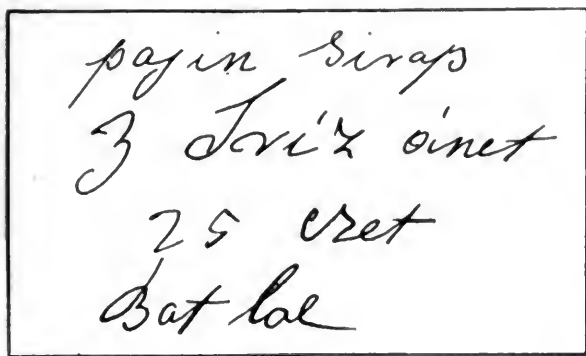 pajin sirap
3 Sviz óinet
25 cret
Bat lol